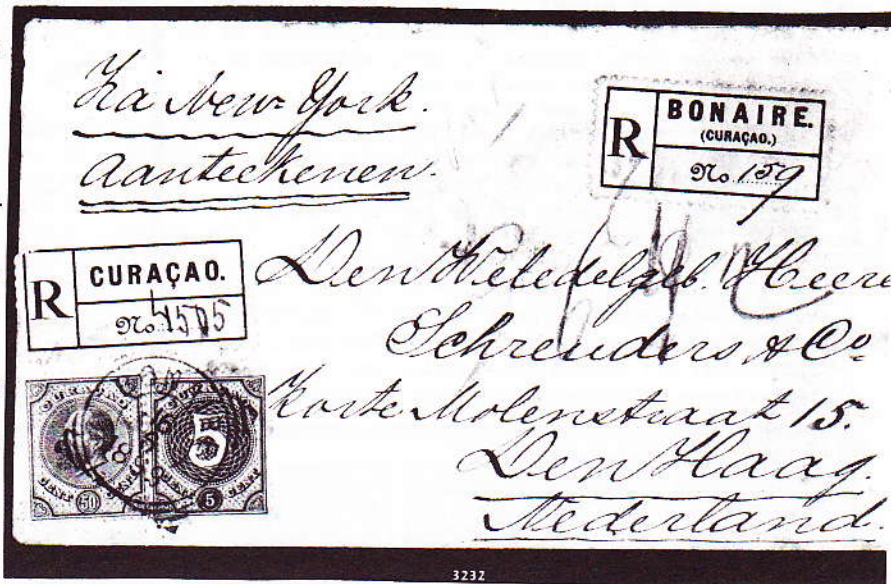 Via New-York.
Aanteekenen.
R
BONAIRE.
(CURAÇAO.)
No. 159
R
CURAÇAO.
No. 4505
Den WelEdelgeb. Heere
Schreuders & Co.
Korte Molenstraat 15.
Den Haag.
Nederland.
CURAÇAO
CURAÇAO
CENT
50
CENT
5
3232